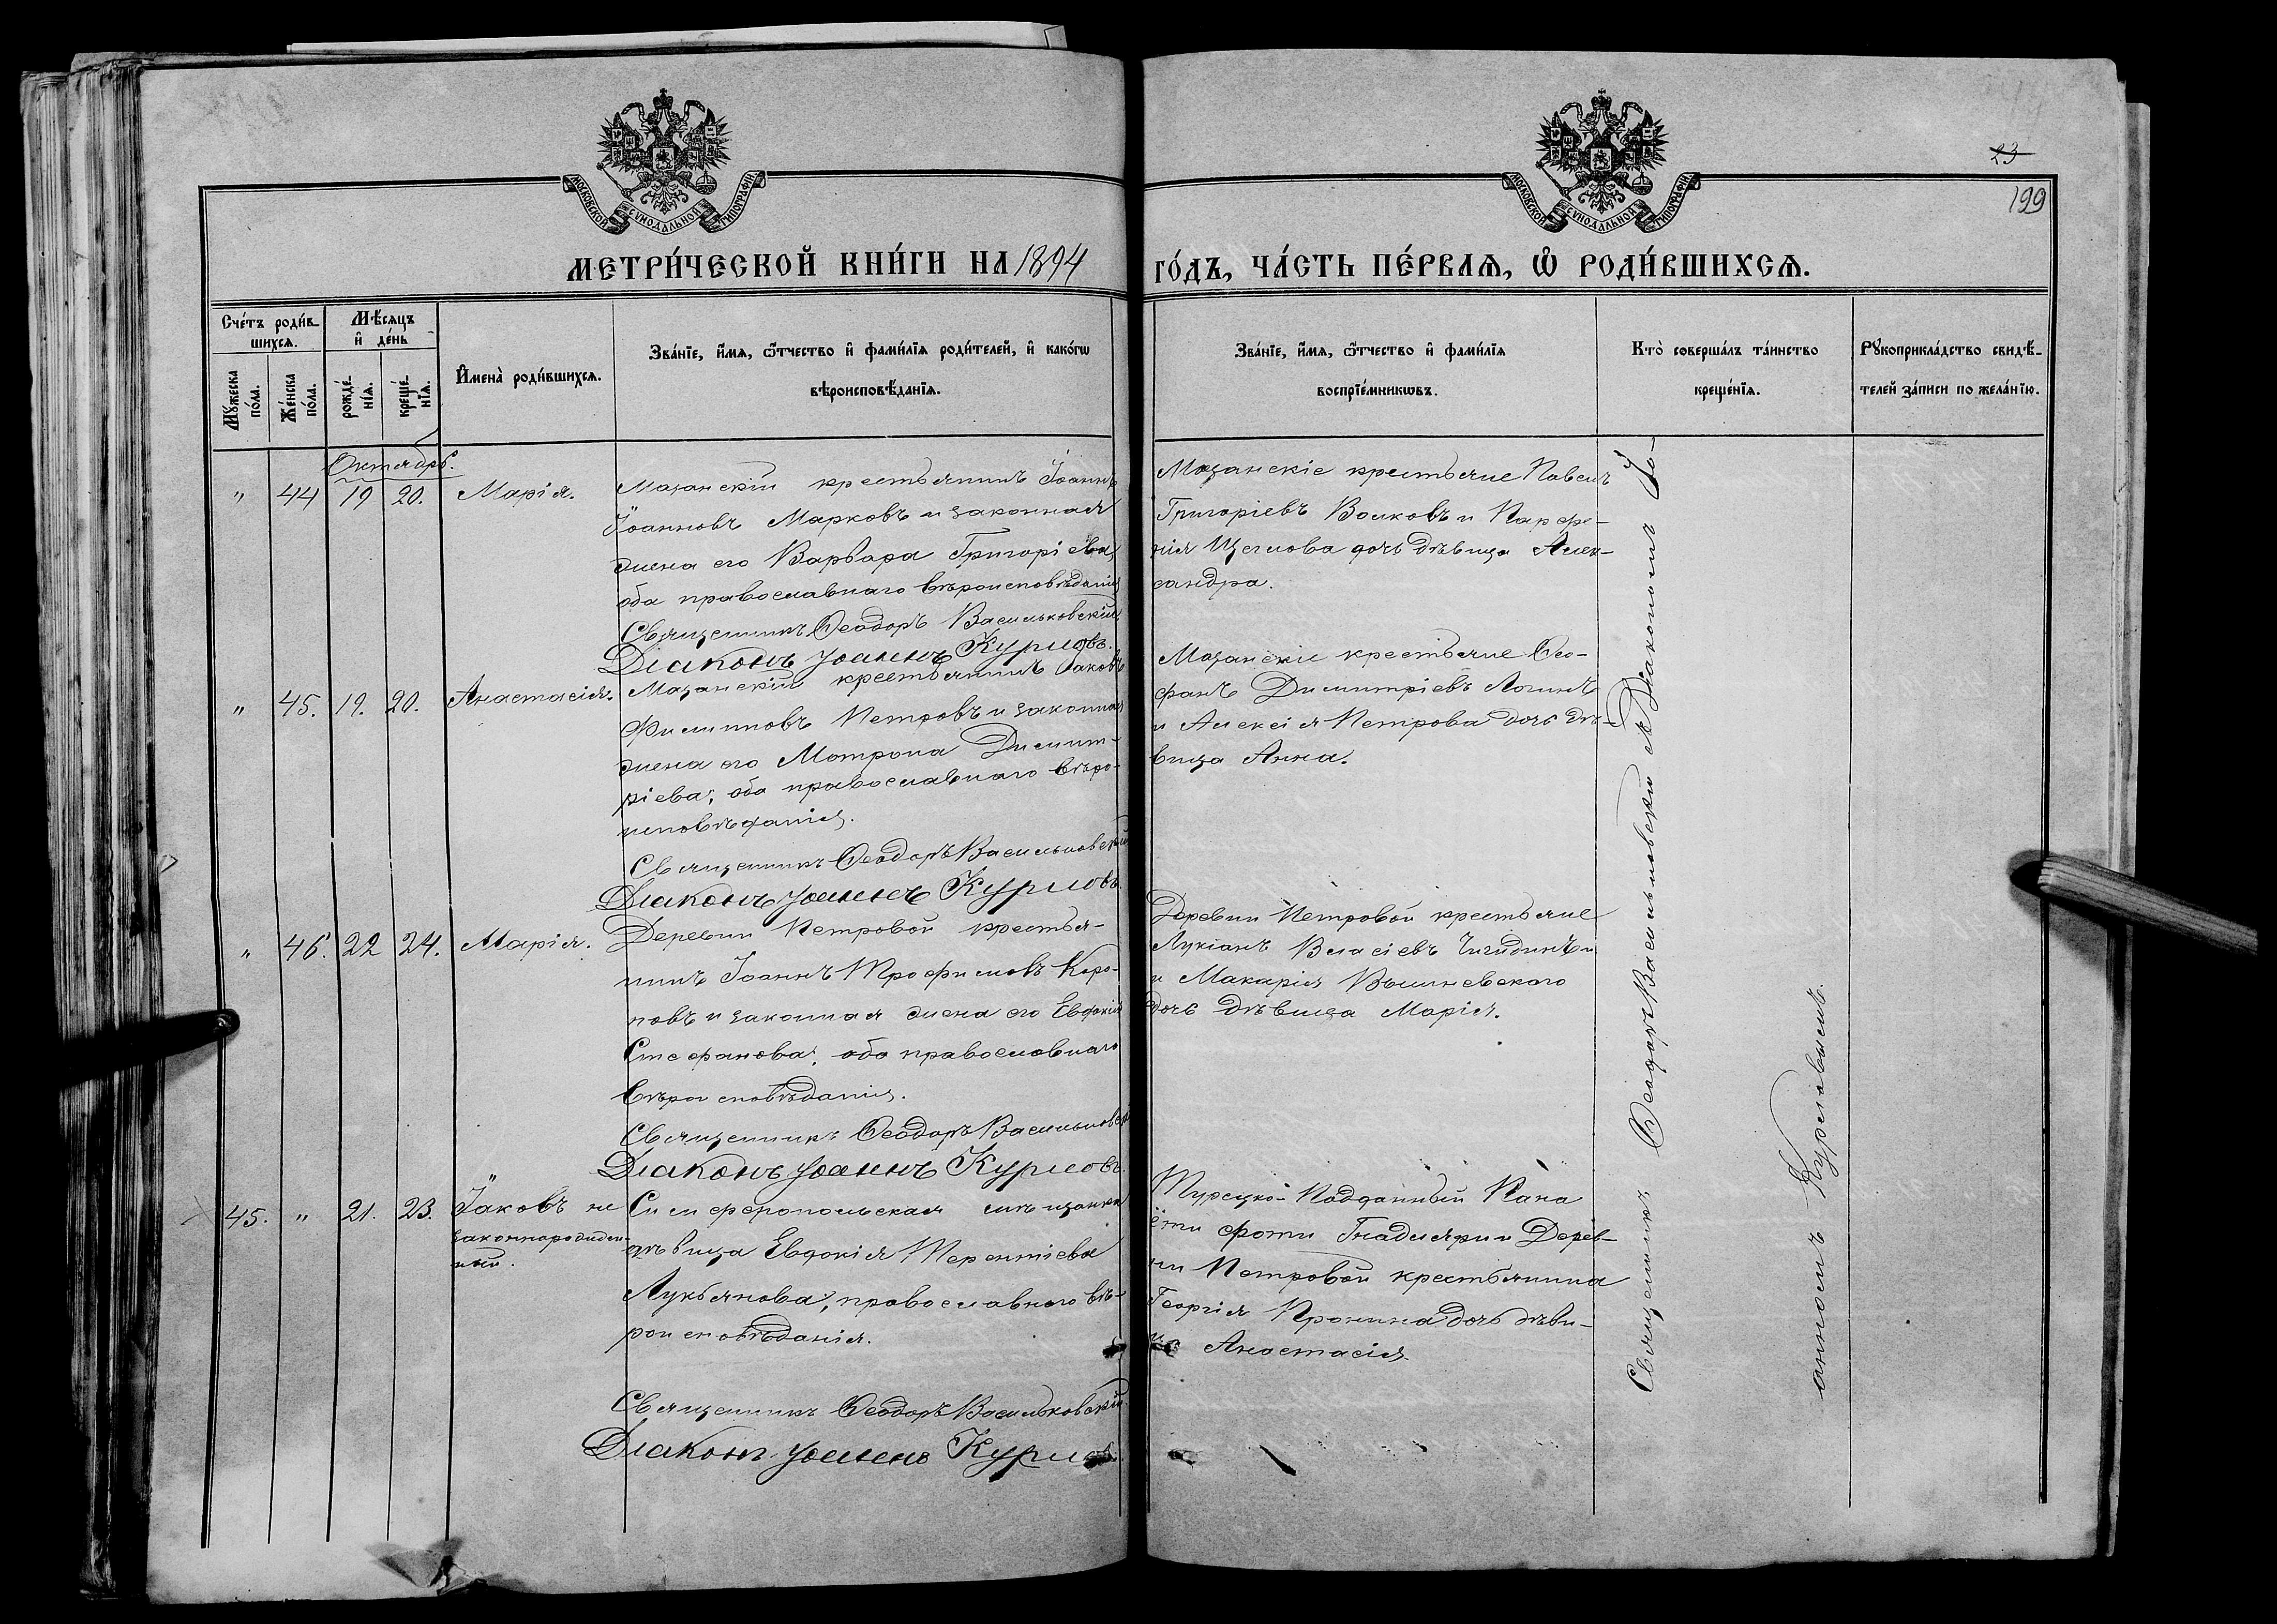 23
199
МОСКОВСКОЙ СѴНОДАЛЬНОЙ ТИПОГРАФІИ
МОСКОВСКОЙ СѴНОДАЛЬНОЙ ТИПОГРАФІИ
МЕТРИ́ЧЕСКОЙ КНИ́ГИ НА 1894
ГО́ДЪ, ЧА́СТЬ ПЕ́РВАѦ, Ѡ҆ РОДИ́ВШИХСѦ.
Сче́тъ роди́в-
шихсѧ.
Мꙋ́жеска по́ла.
Же́нска по́ла.
Мѣ́сѧцъ
и҆ де́нь
рожде́-
нїѧ.
креще́-
нїѧ.
И҆мена̀ роди́вшихсѧ.
Зва́нїе, и҆́мѧ, ѻ҆́тчество и҆ фами́лїѧ роди́телей, и҆ како́гѡ
вѣроисповѣ́данїѧ.
Зва́нїе, и҆́мѧ, ѻ҆́тчество и҆ фами́лїѧ
воспрїе́мникѡвъ.
Кто̀ соверша́лъ та́инство
креще́нїѧ.
Рꙋкоприкла́дство свидѣ́-
телей за́писи по жела́нїю.
Октябрь.
" 44 19 20. Марія.
Мазанскій крестьянинъ Іоаннъ
Іоанновъ Марковъ и законная
жена его Варвара Григоріева,
оба православнаго вѣроисповѣданія
Священникъ Ѳеодоръ Васильковскій
Діаконъ Іоаннъ Курловъ.
Мазанскіе крестьяне Павелъ
Григоріевъ Волковъ и Парфе-
нія Щеглова дочь дѣвица Алек-
сандра.
" 45. 19. 20. Анастасія.
Мазанскій крестьянинъ Іаковъ
Филипповъ Петровъ и законная
жена его Мотрона Димит-
ріева, оба православнаго вѣро-
исповѣданія.
Священникъ Ѳеодоръ Васильковскій
Діаконъ Іоаннъ Курловъ.
Мазанскіе крестьяне Ѳео-
фанъ Димитріевъ Логинъ
и Алексія Петрова дочь дѣ-
вица Анна.
" 46. 22 24. Марія.
Деревни Петровой крестья-
нинъ Іоаннъ Трофимовъ Коро-
повъ и законная жена его Евдокія
Стефанова, оба православнаго
вѣроисповѣданія.
Священникъ Ѳеодоръ Васильковскій
Діаконъ Іоаннъ Курловъ.
Деревни Петровой крестьяне
Лукіанъ Власіевъ
и Макарія Вышневскаго
дочь дѣвица Марія.
45. " 21. 23. Іаковъ не
законнорожден-
ный.
Симферопольская мѣщанка
дѣвица Евдокія Терентіева
Лукьянова, православнаго вѣ-
роисповѣданія.
Священникъ Ѳеодоръ Васильковскій
Діаконъ Іоаннъ Курловъ.
Турецко-Подданный Пана
Фоти и Дерев-
ни Петровой крестьянина
Георгія Пронина дочь дѣви-
ца Анастасія.
Священникъ Ѳеодоръ Васильковскій съ Діакономъ Іо-
анномъ Курловымъ.